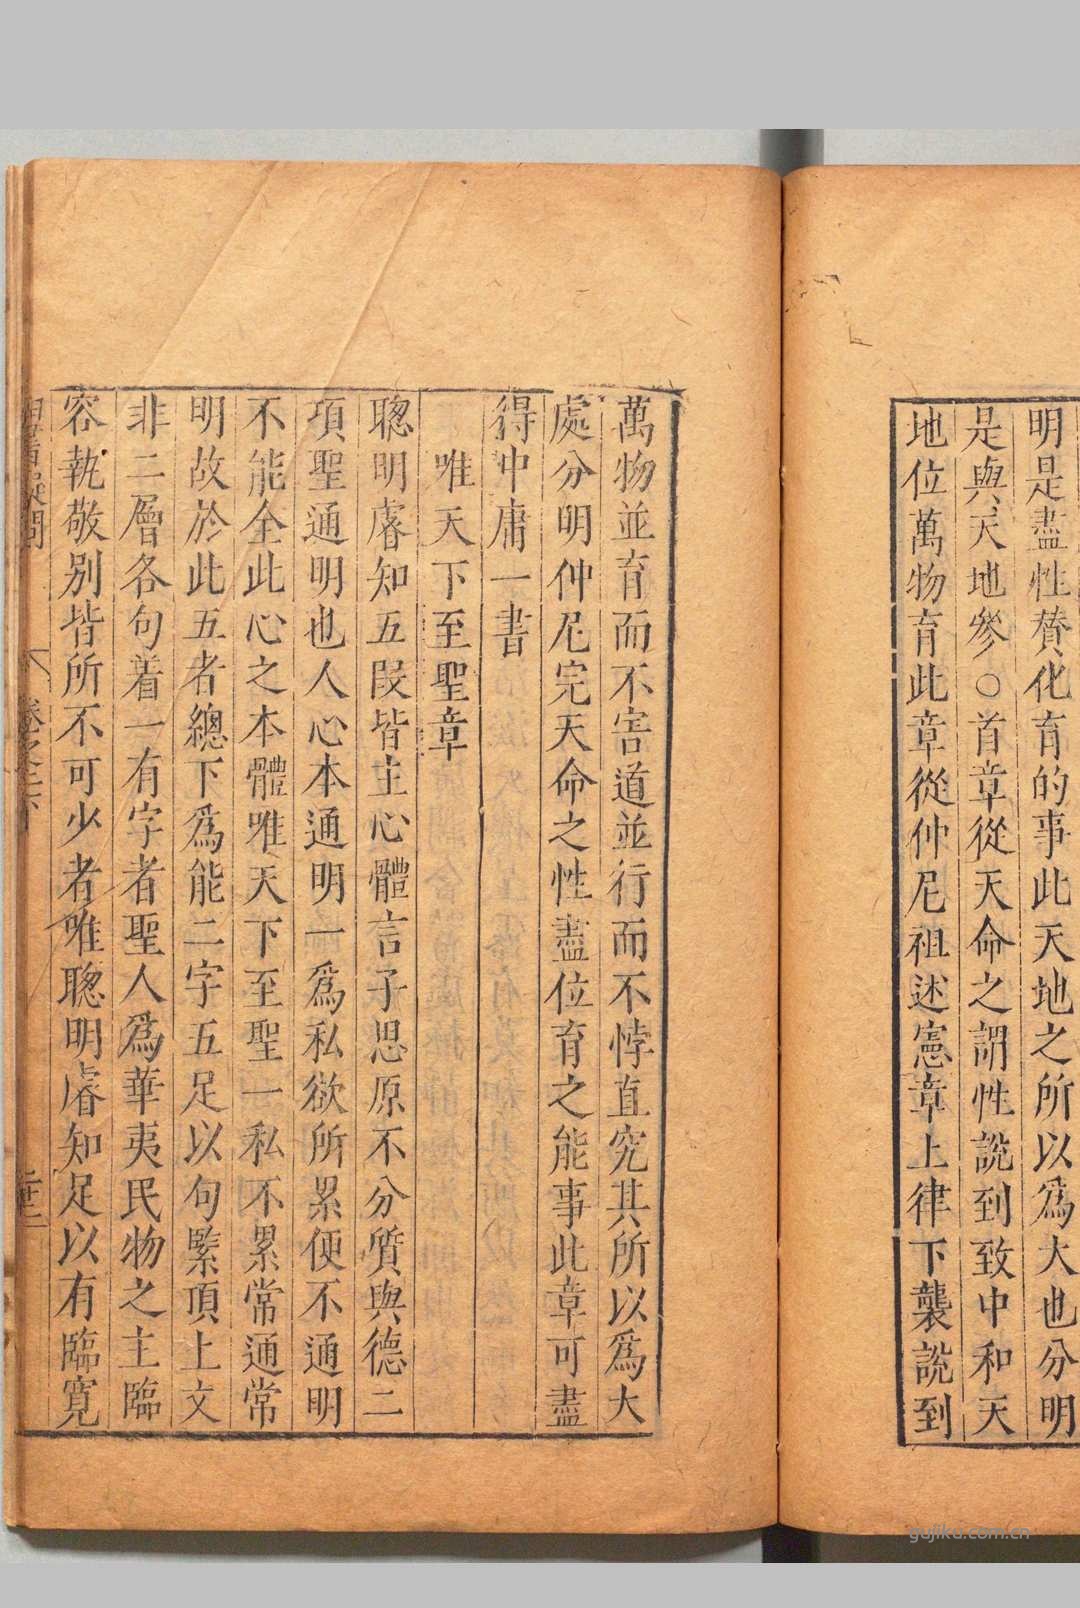 明是盡性贊化育的事此天地之所以爲大也分明
是與天地參○首章從天命之謂性說到致中和天
地位萬物育此章從仲尼祖述憲章上律下襲說到
萬物並育而不害道並行而不悖直究其所以爲大
處分明仲尼完天命之性盡位育之能事此章可盡
得中庸一書
唯天下至聖章
聰明睿知五段皆主心體言子思原不分質與德二
項聖通明也人心本通明一爲私欲所累便不通明
不能全此心之本體唯天下至聖一私不累常通常
明故於此五者總下爲能二字五足以句緊頂上文
非二層各句着一有字者聖人爲華夷民物之主臨
容執敬別皆所不可少者唯聰明睿知足以有臨寬
卷之下
gujiku.com.cn